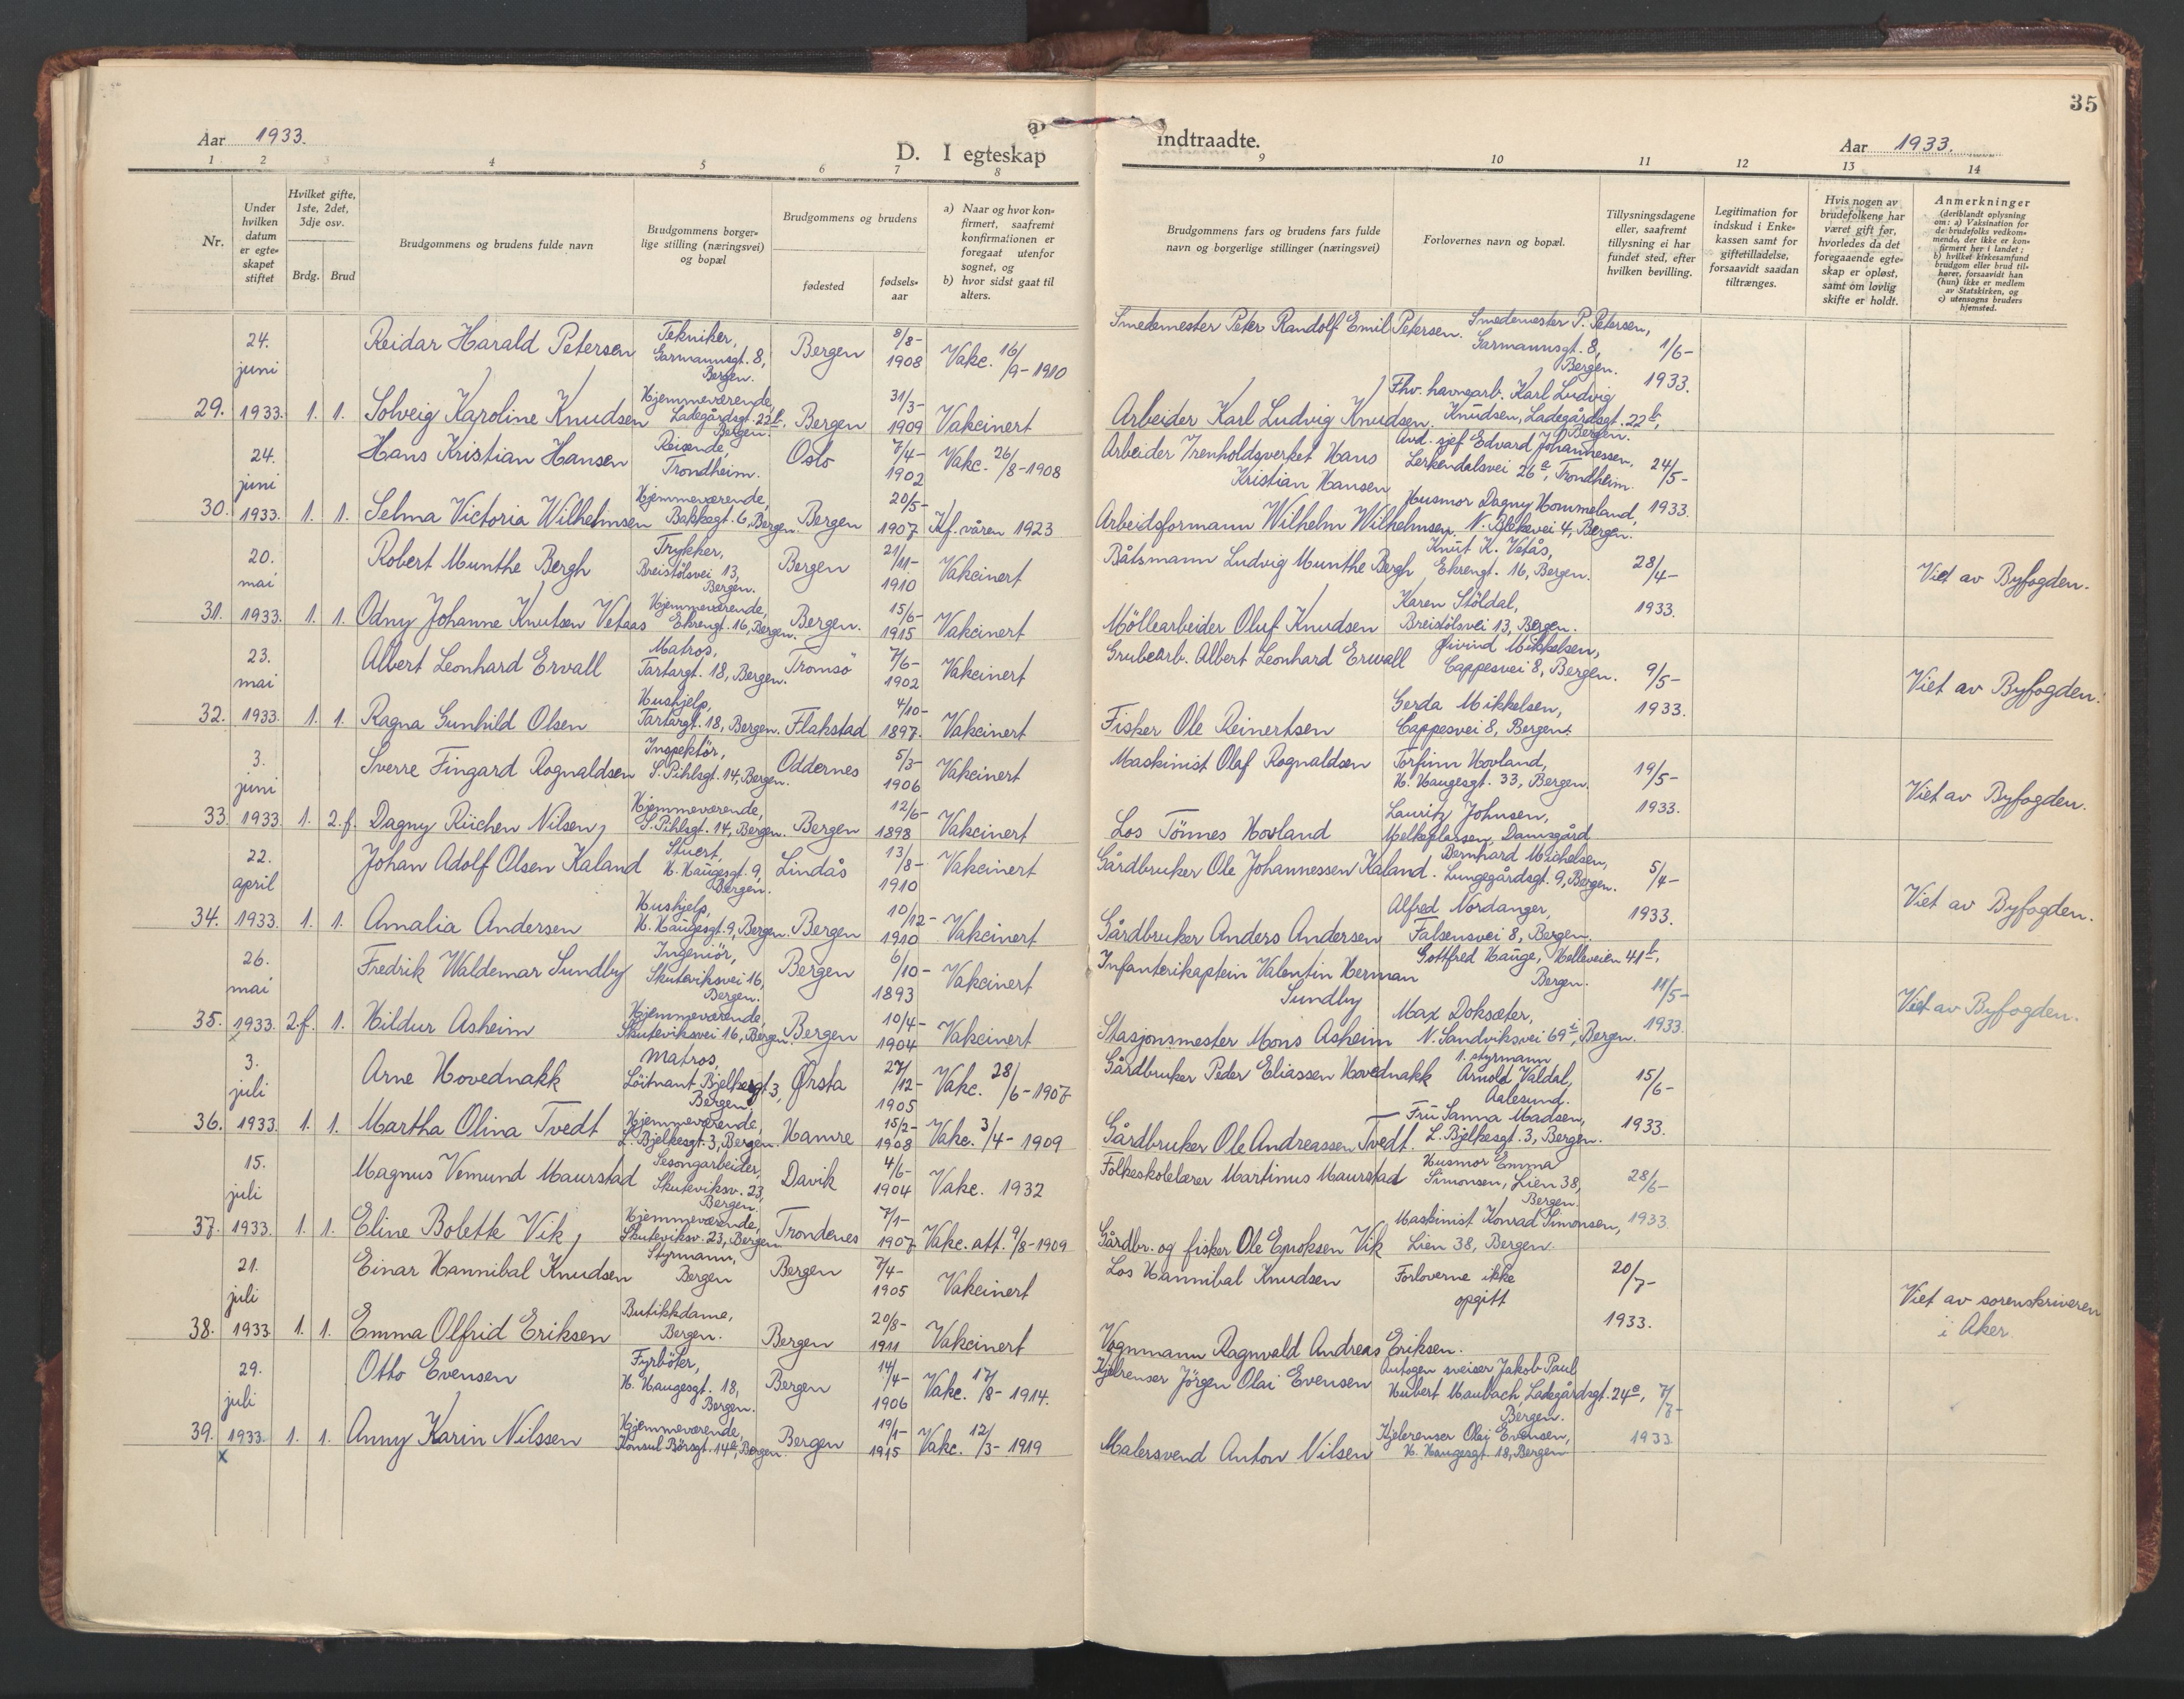 35
Aar 1933.
D. I egteskap indtraadte.
Aar 1933.
1 2 3 4 5 6 7 8 9 10 11 12 13 14
Nr.
Under hvilken datum er egte-skapet stiftet
Hvilket gifte, 1ste, 2det, 3dje osv.
Brdg. Brud
Brudgommens og brudens fulde navn
Brudgommens borger-lige stilling (næringsvei) og bopæl
Brudgommens og brudens
fødested
fødsels-aar
a) Naar og hvor kon-firmert, saafremt konfirmationen er foregaat utenfor sognet, og
b) hvor sidst gaat til alters.
Brudgommens fars og brudens fars fulde navn og borgerlige stillinger (næringsvei)
Forlovernes navn og bopæl.
Tillysningsdagene eller, saafremt tillysning ei har fundet sted, efter hvilken bevilling.
Legitimation for indskud i Enke-kassen samt for giftetilladelse, forsaavidt saadan tiltrænges.
Hvis nogen av brudefolkene har været gift før, hvorledes da det foregaaende egte-skap er opløst, samt om lovlig skifte er holdt.
Anmerkninger
(deriblandt oplysning om: a) Vaksination for de brudefolks vedkom-mende, der ikke er kon-firmert her i landet; b) hvilket kirkesamfund brudgom eller brud til-hører, forsaavidt han (hun) ikke er medlem av Statskirken, og c) utensogns bruders hjemsted.
29. 24. juni 1933. 1. 1.
Reidar Harald Petersen Tekniker, Garmannsgt. 8, Bergen. Bergen 8/8-1908 Vakc. 16/9-1910 Smedemester Peter Randolf Emil Petersen. Smedemester P. Petersen, Garmannsgt. 8, Bergen. 1/6-1933.
Solveig Karoline Knudsen Hjemmeværende, Ladegårdsgt. 22b, Bergen. Bergen 31/3-1909 Vakcinert Arbeider Karl Ludvig Knudsen. Fhv. havnearb. Karl Ludvig Knudsen, Ladegårdsgt. 22b, Bergen.
30. 24. juni 1933. 1. 1.
Hans Kristian Hansen Reisende, Trondheim. Oslo 7/4-1902 Vakc. 26/8-1908 Arbeider Irenholdsverket Hans Kristian Hansen Avd. sjef Edvard Johannessen, Lerkendalsvei 26a, Trondheim. 24/5-1933.
Selma Victoria Wilhelmsen Hjemmeværende, Bakkegt. 6, Bergen. Bergen 20/5-1907 Kf. våren 1923 Arbeidsformann Wilhelm Wilhelmsen. Husmor Dagny Hommeland, N. Blekevei 4, Bergen.
31. 20. mai 1933. 1. 1.
Robert Munthe Bergh Trykker, Breistölsvei 13, Bergen. Bergen 21/11-1910 Vakcinert Båtsmann Ludvig Munthe Bergh Knut K. Vetås, Ekrengt. 16, Bergen. 28/4-1933. Viet av Byfogden.
Odny Johanne Knutsen Vetaas Hjemmeværende, Ekrengt. 16, Bergen. Bergen. 15/6-1915 Vakcinert Möllearbeider Oluf Knudsen Karen Stöldal, Breistölsvei 13, Bergen.
32. 23. mai 1933. 1. 1.
Albert Leonhard Ervall Matros, Tartargt. 18, Bergen. Tromsö 7/6-1902 Vakcinert Grubearb. Albert Leonhard Erwall Øivind Mikkelsen, Cappesvei 8, Bergen. 9/5-1933. Viet av Byfogden.
Ragna Gunhild Olsen Hushjelp, Tartargt. 18, Bergen. Flakstad 4/10-1897. Vakcinert Fisker Ole Reinertsen Gerda Mikkelsen, Cappesvei 8, Bergen.
33. 3. juni 1933. 1. 2.f.
Sverre Fingard Rognaldsen Inspektör, S. Pihlsgt. 14, Bergen. Oddernes 5/3-1906 Vakcinert Maskinist Olaf Rognaldsen Torfinn Hovland, H. Haugesgt. 33, Bergen. 19/5-1933. Viet av Byfogden.
Dagny Riichen Nilsen, Hjemmeværende, S. Pihlsgt. 14, Bergen. Bergen 12/6-1898 Vakcinert Los Tönnes Hovland Lauritz Johnsen, Melkeplassen, Damsgård
34. 22. april 1933. 1. 1.
Johan Adolf Olsen Kaland Stuert, H. Haugesgt. 9, Bergen. Lindås 13/8-1910 Vakcinert Gårdbruker Ole Johannessen Kaland. Bernhard Michelsen, Lungegårdsgt. 9, Bergen. 5/4-1933. Viet av Byfogden.
Amalia Andersen Hushjelp, H. Haugesgt. 9, Bergen. Bergen 10/12-1910 Vakcinert Gårdbruker Anders Andersen Alfred Nordanger, Falsensvei 8, Bergen.
35. 26. mai 1933. 2.f. 1.
Fredrik Waldemar Sundby Ingeniör, Skuteviksvei 16, Bergen. Bergen 6/10-1893 Vakcinert Infanterikaptein Valentin Herman Sundby Gottfred Hauge, Helleveien 41b, Bergen. 11/5-1933. Viet av Byfogden.
Hildur Asheim Hjemmeværende, Skuteviksvei 16, Bergen. Bergen 10/4-1904 Vakcinert Stasjonsmester Mons Asheim Max Doksæter, N. Sandviksvei 69, Bergen.
36. 3. juli 1933. 1. 1.
Arne Hovednakk Matros, Löitnant Bjelkesgt. 3, Bergen Ørsta 27/12-1905 Vakc. 28/6-1907 Gårdbruker Peder Eliassen Hovednakk 1. styrmann Arnold Valdal, Aalesund. 15/6-1933.
Martha Olina Tvedt Hjemmeværende, L. Bjelkesgt. 3, Bergen. Hamre 15/2-1908 Vakc. 3/4-1909 Gårdbruker Ole Andreassen Tvedt. Fru Sanna Madsen, L. Bjelkesgt. 3, Bergen.
37. 15. juli 1933. 1. 1.
Magnus Vemund Maurstad Sesongarbeider, Skuteviksv. 23, Bergen. Davik 4/6-1904 Vakc. 1932 Folkeskolelærer Martinus Maurstad Husmor Emma Simonsen, Lien 38, Bergen. 28/6-1933.
Eline Bolette Vik, Hjemmeværende, Skuteviksv. 23, Bergen. Trondenes 7/1-1907 Vakc. att. 9/8-1909 Gårdbr. og fisker Ole Enoksen Vik Maskinist Konrad Simonsen, Lien 38, Bergen.
38. 21. juli 1933 1. 1.
Einar Hannibal Knudsen Styrmann, Bergen Bergen 7/4-1905 Vakcinert Los Hannibal Knudsen Forloverne ikke opgitt 20/7-1933. Viet av sorenskriveren i Aker.
Emma Olfrid Eriksen Butikkdame, Bergen. Bergen 20/8-1911 Vakcinert Vognmann Ragnvald Andreas Eriksen.
39. 29. juli 1933. x 1. 1.
Otto Evensen Fyrböter, H. Haugesgt. 18, Bergen. Bergen 14/4-1906 Vakc. 17/8-1914. Kjelrenser Jörgen Olai Evensen Autogen sveiser Jakob Paul Hubert Maubach, Ladegårdsgt. 24a, Bergen. 7/7-1933
Anny Karin Nilssen Hjemmeværende, Konsul Börsgt. 14a, Bergen. Bergen 19/1-1915 Vakc. 12/3-1919 Malersvend Anton Nilsen Kjelerenser Olai Evensen, H. Haugesgt. 18, Bergen